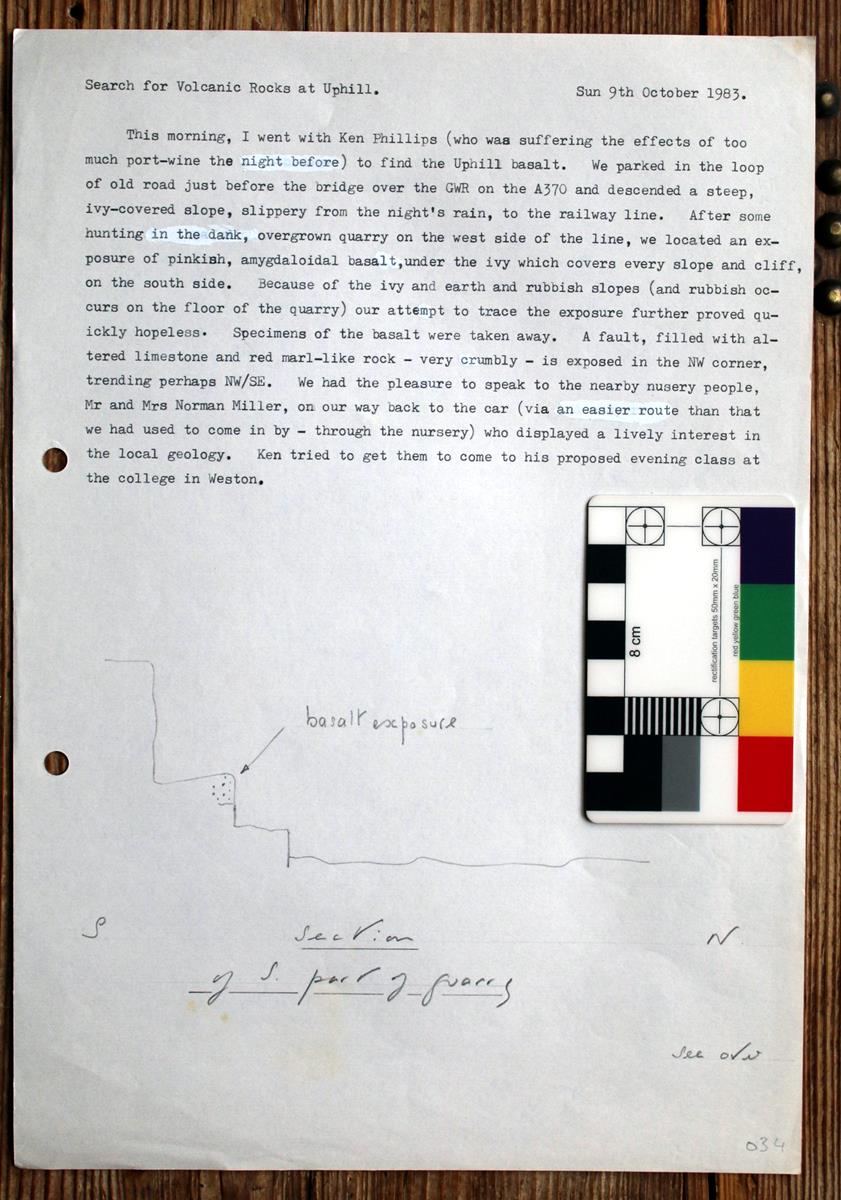 Search for Volcanic Rocks at Uphill. Sun 9th October 1983.
This morning, I went with Ken Phillips (who was suffering the effects of too
much port-wine the night before) to find the Uphill basalt. We parked in the loop
of old road just before the bridge over the GWR on the A370 and descended a steep,
ivy-covered slope, slippery from the night's rain, to the railway line. After some
hunting in the dank, overgrown quarry on the west side of the line, we located an ex-
posure of pinkish, amygdaloidal basalt,under the ivy which covers every slope and cliff,
on the south side. Because of the ivy and earth and rubbish slopes (and rubbish oc-
curs on the floor of the quarry) our attempt to trace the exposure further proved qu-
ickly hopeless. Specimens of the basalt were taken away. A fault, filled with al-
tered limestone and red marl-like rock - very crumbly - is exposed in the NW corner,
trending perhaps NW/SE. We had the pleasure to speak to the nearby nusery people,
Mr and Mrs Norman Miller, on our way back to the car (via an easier route than that
we had used to come in by - through the nursery) who displayed a lively interest in
the local geology. Ken tried to get them to come to his proposed evening class at
the college in Weston.
8 cm
rectification targets 50mm x 20mm
red yellow green blue
basalt exposure
S section N
of S. part of quarry
see over
034